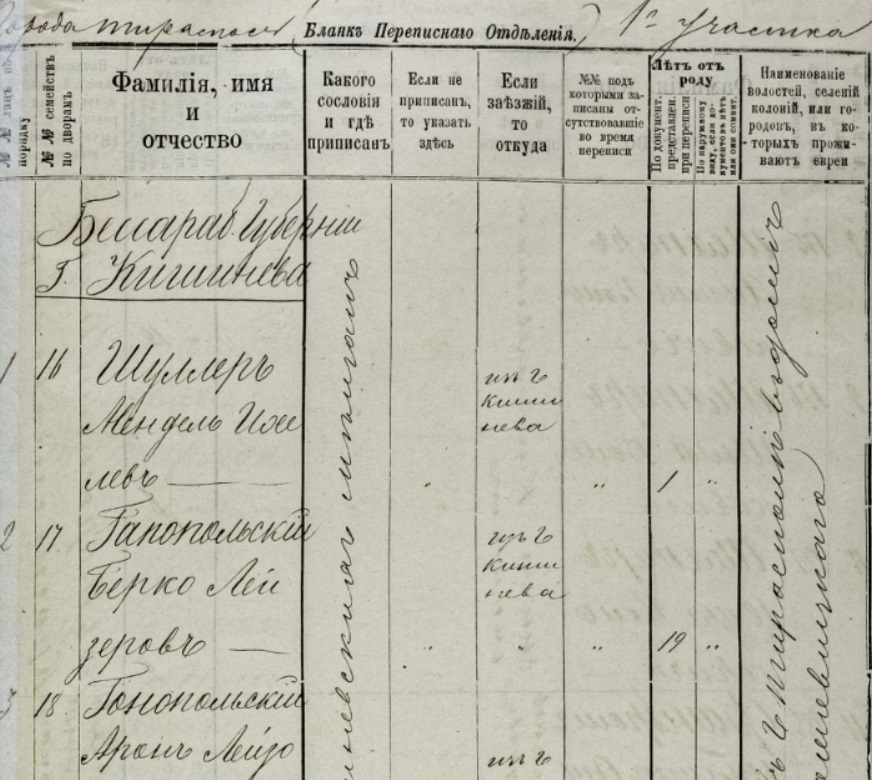 Города Тирасполь Бланкъ Переписнаго Отдѣленія. 1го Участка
№№ лицъ по порядку
№№ семействъ по дворамъ
Фамилія, имя
и
отчество
Какого
сословія
и гдѣ
приписанъ
Если не
приписан,
то указать
здѣсь
Если
заѣзжій,
то
откуда
№№ подъ
которыми за-
писаны от-
сутствовавшіе
во время
переписи
Лѣтъ отъ
роду
По документ.
представлен.
при переписи
По наружному
виду, если до-
кумента нѣтъ
или онъ сомнит.
Наименованіе
волостей, селеній
колоній, или го-
родовъ, въ ко-
торыхъ прожи-
ваютъ евреи
Бессараб. Губерніи
Г. Кишинева
1 16 Шуллеръ
Мендель Иосе
левъ —
изъ г
Киши
нева
" 1 "
2 17 Гапопольскій
Берко Лей
зеровъ —
изъ г
Киши
нева
" " " 19 "
18 Гонопольскій
Аронъ Лейзо
изъ г
мѣщанъ
въ г Тирасполѣ